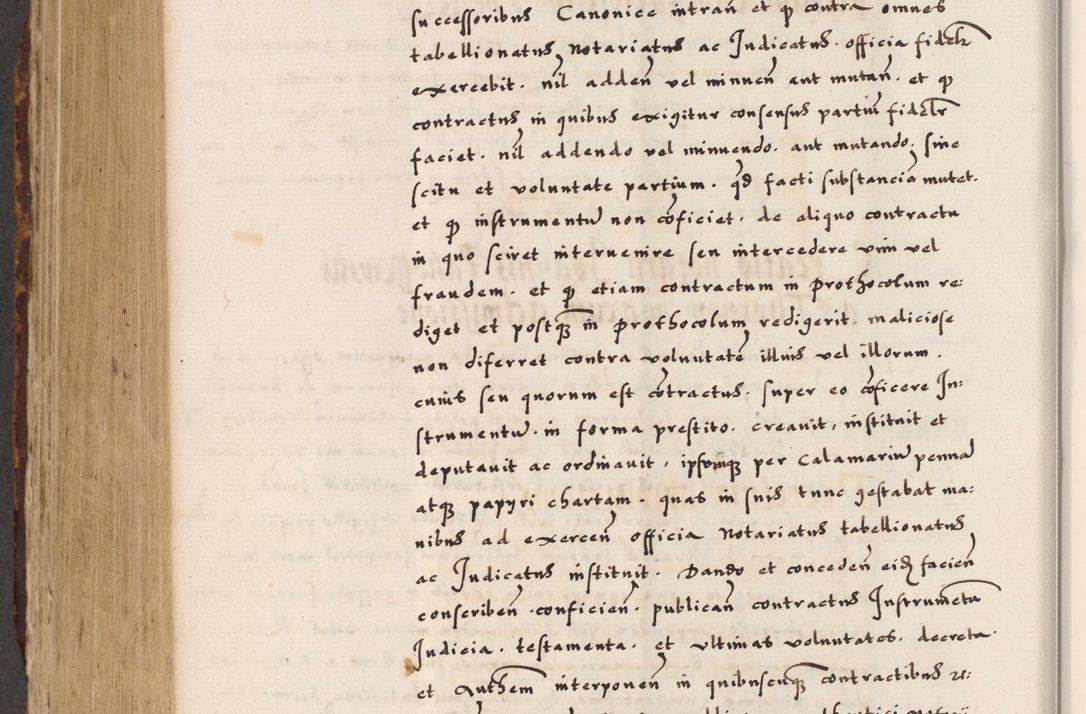 successoribus Canonice intran̄ et ꝙ contra omnes
tabellionatus Notariatus ac Judicatus. officia fidelr̄
exercebit. nil adden̄ vel minuen̄ aut mutan̄. et ꝙ
contractus in quibus exigitur consensus partiū fidelr̄
faciet. nil addendo vel minuendo. aut mutando, sine
scitu et voluntate partium. qd̄ facti substanciā mutet.
et ꝙ instrumentū non cōficiet. de aliquo contractu
in quo sciret interuenire seu intercedere vim vel
fraudem. et ꝙ etiam contractum in prothocolum re:
diget et postq̄ꝫ in prothocolum redigerit. maliciose
non diferret contra voluntatē illius vel illorum.
cuius seu quorum est cōtractus. super eo cōficere In:
strumentū. in forma prestito. creauit, instituit et
deputauit ac ordinauit. ipsumqꝫ per Calamariū pennā
atqꝫ papyri chartam. quas in suis tunc gestabat ma:
nibus ad exercen̄ officia Notariatus tabellionatus
ac Judicatus instituit. Dando et conceden̄ eidꝫ facien̄
conscriben̄. conficien̄. publican̄ contractus Instrumēta
Judicia. testamenta. et vltimas voluntates. decreta.
et Authem̄ interponen̄ in quibuscumqꝫ contractibus re: